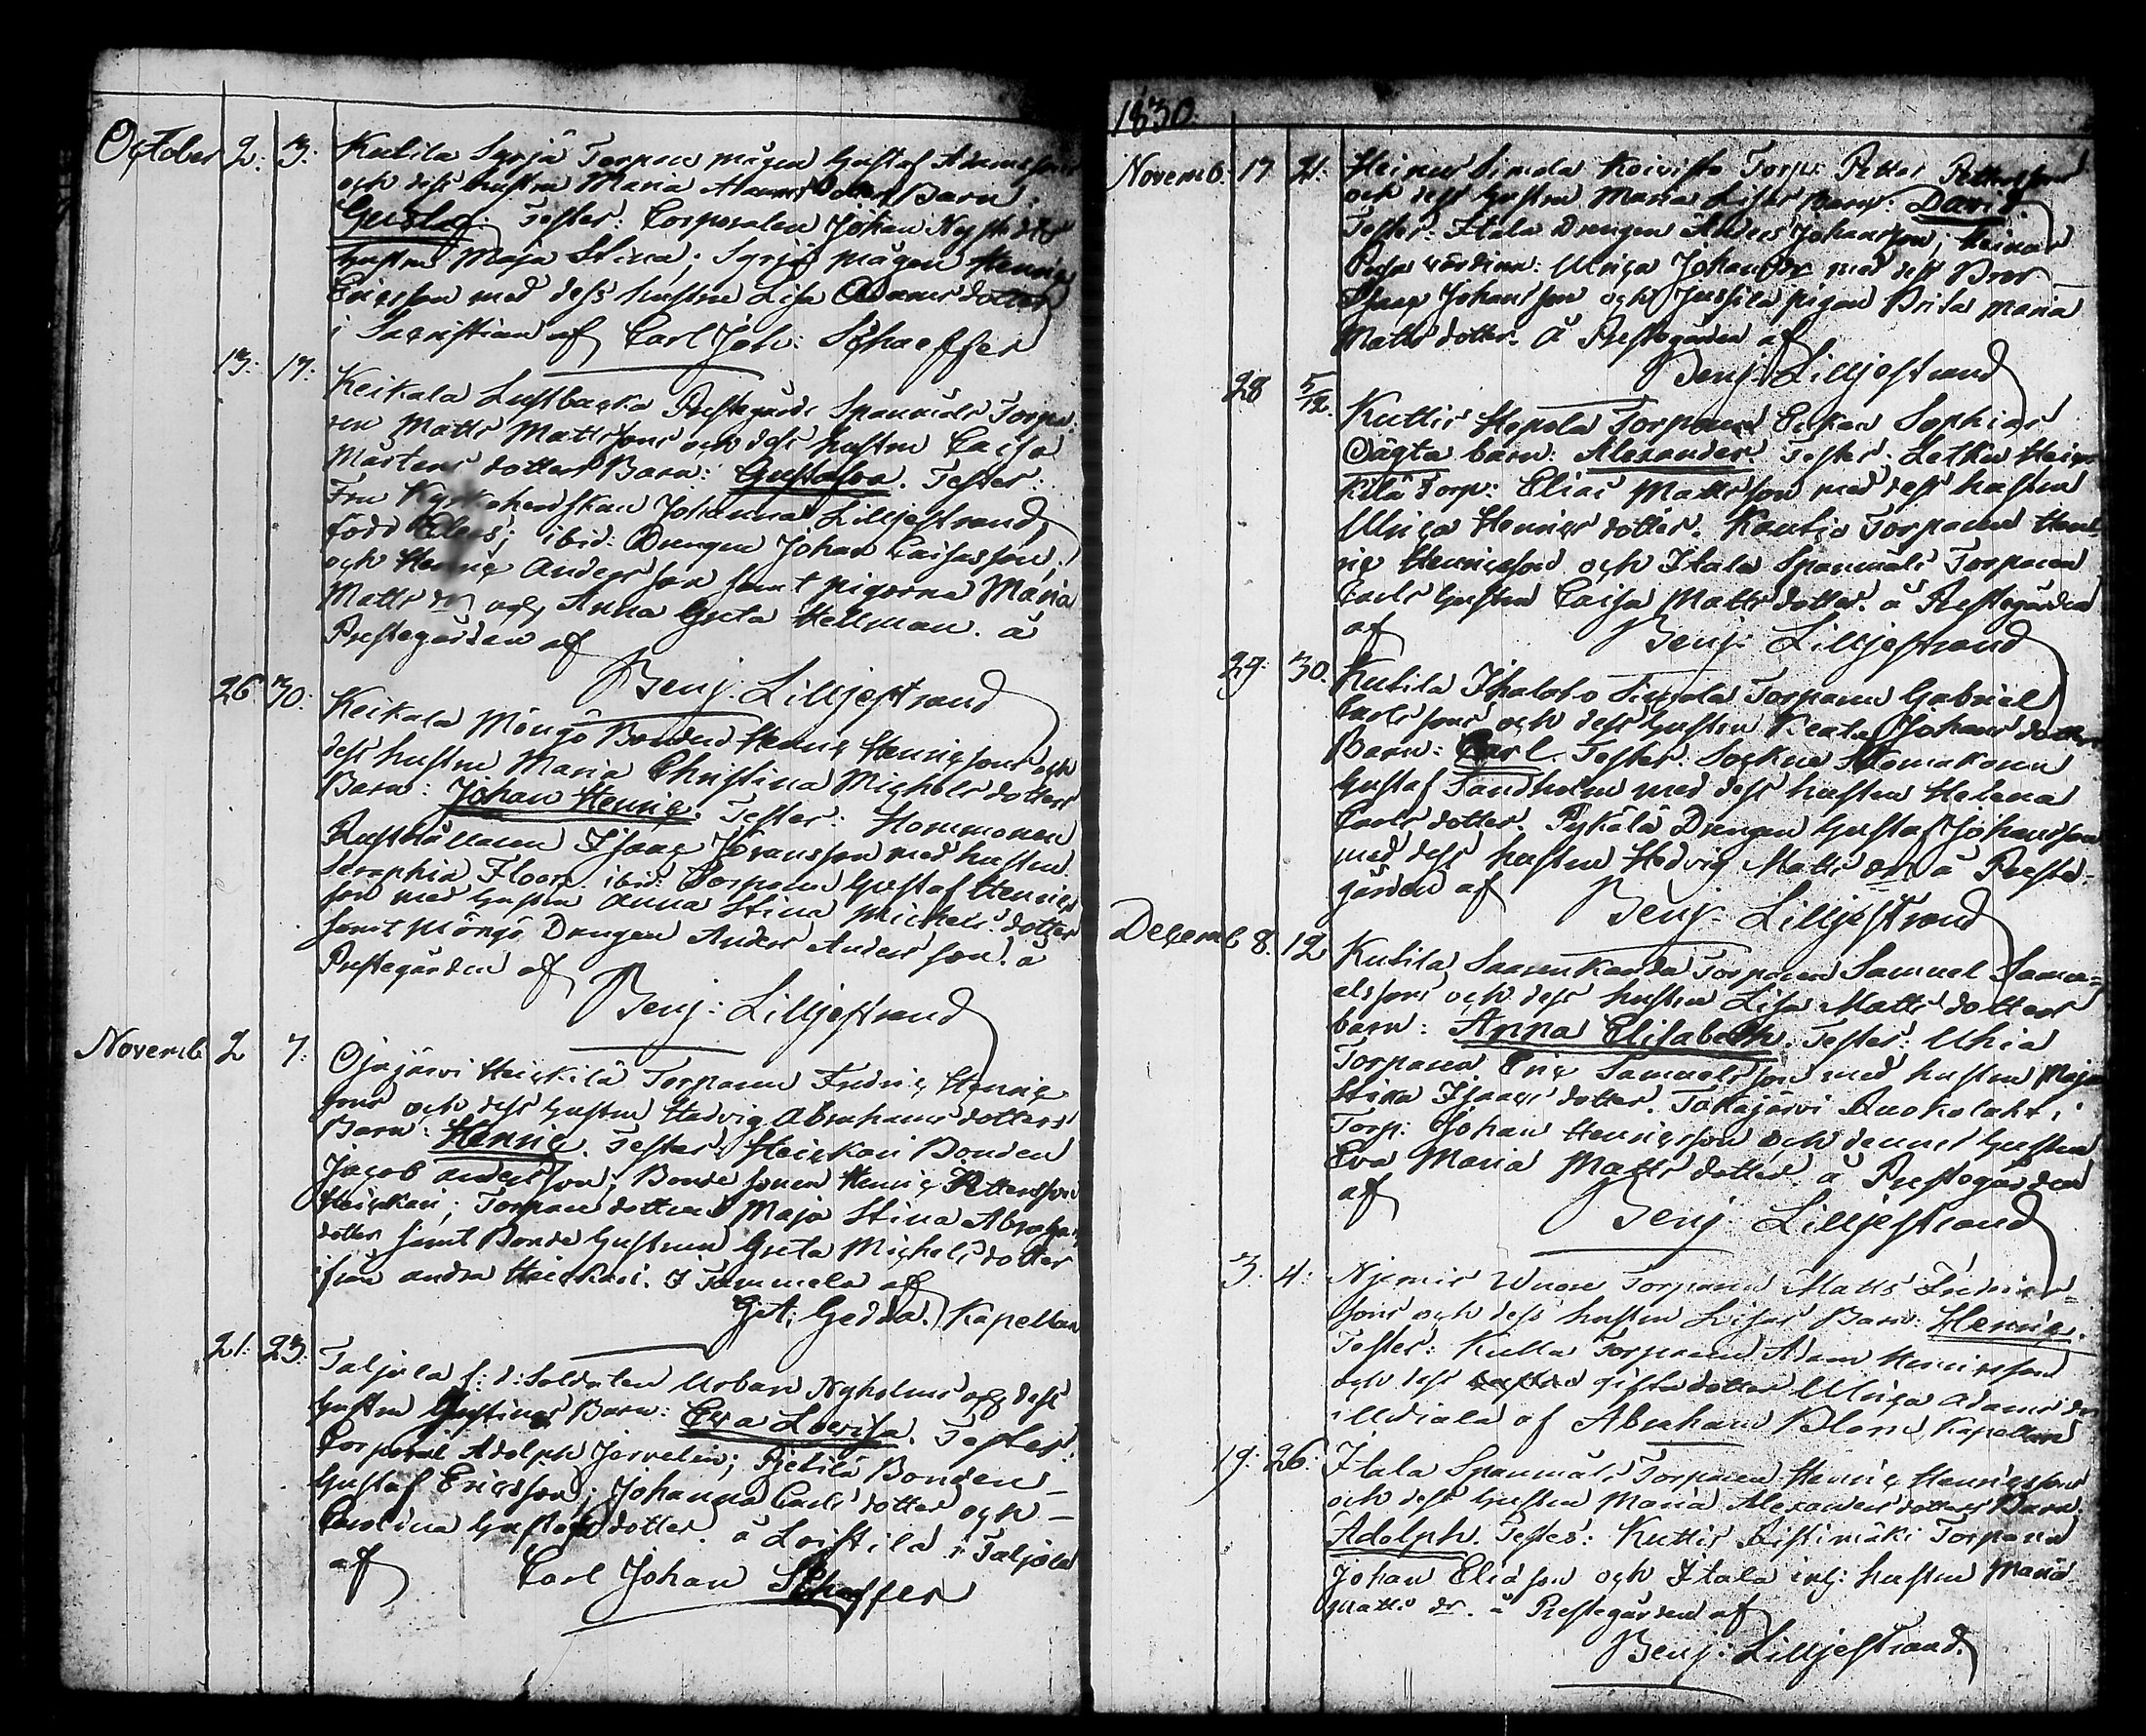 October 2. 3. Kutila Syrjä Torpen mågen Gustaf Adamssons
och dess hustru Maria Adams dotters Barn:
Gustaf. Testes: Corporalen Johan Nystedts
hustru Maja Stina; Syrjä mågen Henric
Ericsson med dess hustru Lisa Adams dotter
i Sacristian af Carl Joh: Schaeffer
13. 17. Keikala Lustbacka Prestegårds Spanmåls Torpa-
ren Matts Mattssons och dess hustru Caisa
Mårtens dotters Barn: Gustafva. Testes:
Fru Kyrkoherdskan Johanna Lilljestrand
född; ibid: Drengen Johan Caisasson;
och Henric Andersson samt pigorna Maria
Matts dr och Anna Greta Hellman. å
Prestegården af
Benj. Lilljestrand
26. 30. Keikala Möngö Bonden Henric Henricssons och
dess hustru Maria Christina Michels dotters
Barn: Johan Henric. Testes: Hommonen
Rusthållaren Isaac Johansson med hustru
Seraphia Floor. ibid: Torparen Gustaf Henrics
son med hustru Anna Stina Michels dotter
samt Möngö Drengen Anders Andersson. å
Prestegården af
Benj: Lilljestrand
Novemb. 2 7. Ojajärvi Heickilä Torparen Fredric Henric
sons och dess hustru Hedvig Abrahams dotters
Barn: Henric. Testes: Heickari Bonden
Jacob Andersson; Bonde sonen Henric Pettersson
Heickari; Torpare dottren Maja Stina Abrahams
dotter samt Bonde hustrun Greta Michels dotter
ifrån andra Heickari. I Tammela af
Gst: Gedda. Kapellan
21. 23. Taljala f: d: Soldaten Urban Nyholms och dess
hustru Justinas Barn: Eva Lovisa. Testes:
Corporal Adolph Jervelin; Pjetilä Bonden
Gustaf Ericsson; Johanna Carls dotter och
Carolina Gustafs dotter. å Loistila i Taljala
af Carl Johan Schaffer
1830.
Novemb. 17 21. Heinu Simola Koivisto Torp: Petter Petterssons
och dess hustru Maria Lisas Barn: David.
Testes: Itala Drengen Anders Johansson; Heinu
värdinn: Ulrica Johans dr med dess Bror
Isaac Johansson och Jussila pigan Brita Maria
Matts dotter. å Prestegården af
Benj. Lilljestrand
28 5/12. Kuttis Hepola Torpare Enkan Sophias
Oägta barn: Alexander. Testes: Letku Heic-
kilä Torp: Elias Mattsson med dess hustru
Ulrica Henrics dotter. Torparen Hen-
ric Henricsson och Itala Spanmåls Torparen
Carls hustru Caisa Matts dotter. å Prestegården
af Benj. Lilljestrand
29. 30. Kutila Ihalato Simola Torparen Gabriel
Carlssons och dess hustru Beata Johans dotters
Barn: Carl. Testes: Sockne Skomakaren
Gustaf Sandholm med dess hustru Helena
Carls dotter. Pykälä Drengen Gustaf Johansson
med dess hustru Hedvig Matts dr. å Preste-
gården af Benj. Lilljestrand
Decemb 8. 12 Kutila Saarenkanda Torparen Samuel Samu-
elssons och dess hustru Lisa Matts dotters
barn: Anna Elisabeth. Testes: Uhia
Torparen Eric Samuelsson med hustru Maja
Stina Isaacs dotter. Takajärvi Ruokolaht:
Torp: Johan Henricsson och dennes hustru
Eva Maria Matts dotter. å Prestegården
af Benj. Lilljestrand
3. 4. Njemis Wuore Torparen Matts Fredrics-
sons och dess hustru Lisas Barn: Henric.
Testes: Kulla Torparen Adam Henricsson
och dess gifta dotter Ulrica Adams dr
i Urdiala af Abraham Blom, Kapellan
19. 26. Itala Spanmåls Torparen Henric Henricssons
och dess hustru Maria Alexanders dotters Barn
Adolph. Testes: Kuttis Ristimäki Torparen
Johan Eliasson och Itala inh: hustru Maria
Matts dr. å Prestegården af
Benj: Lilljestrand.